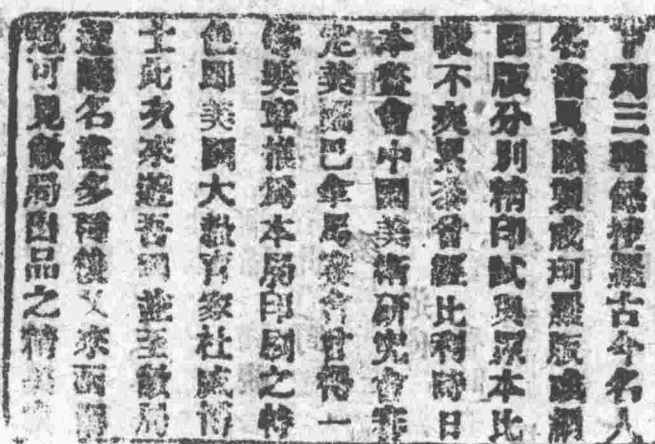 中列三種係搜羅古今名人
名畫真蹟製成珂羅版或網
目版分別精印試與原本比
較不爽累黍曾經比利時日
本賽會中國美術研究會審
定美國巴拿馬賽會曾得一
等獎章推為本局印刷之特
色即美國大教育家杜威博
士此次來遊吾國並至敝局
選購名畫多種後又來函
可見敝局出品之精美